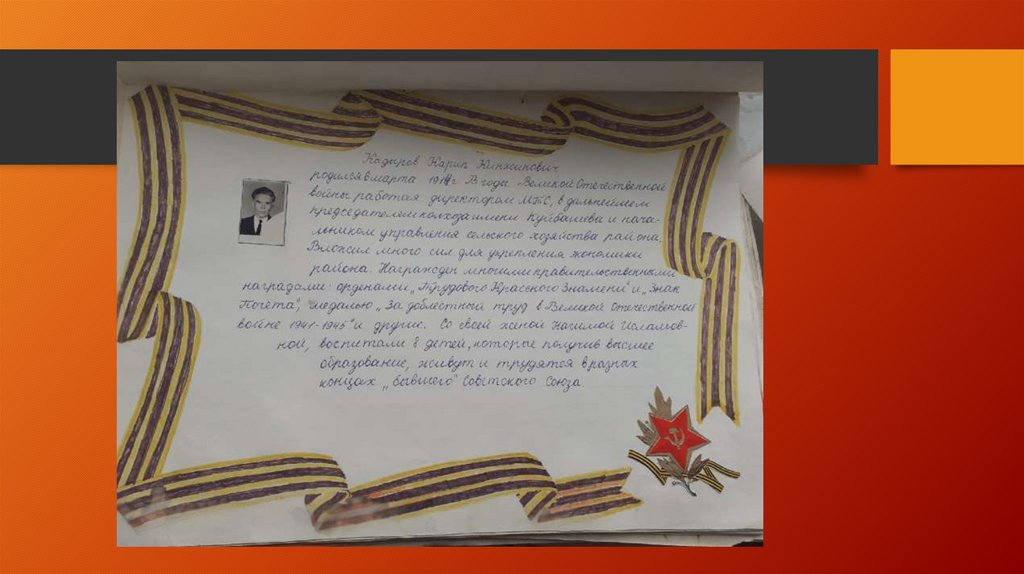 Кадыров Карип
родился 8 марта 1914г. В годы Великой Отечественной
войны работал директором МТС, в дальнейшем
председателем колхоза имени Куйбышева и нача-
льником управления сельского хозяйства района.
Вложил много сил для укрепления экономики
района. Награжден многими правительственными
наградами: орденами „Трудового Красного Знамени" и „Знак
Почета", медалью „За доблестный труд в Великой Отечественной
войне 1941-1945" и другие. Со своей женой Нагимой Исламов-
ной, воспитали 8 детей, которые получив высшее
образование, живут и трудятся в разных
концах „бывшего" Советского Союза.